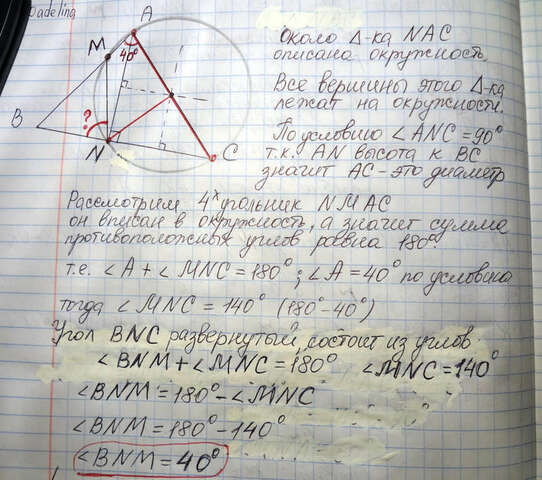 padelina
A
M
40°
B
?
N
C
около Δ-ка NAC
описана окружность.
Все вершины этого Δ-ка
лежат на окружности.
По условию ∠ANC = 90°
т.к. AN высота к BC
значит AC - это диаметр
Рассмотрим 4ˣугольник NMAC
он вписан в окружность, а значит сумма
противоположных углов равна 180°.
т.е. ∠A + ∠MNC = 180°; ∠A = 40° по условию
тогда ∠MNC = 140° (180° - 40°)
Угол BNC развернутый, состоит из углов
∠BNM + ∠MNC = 180° ∠MNC = 140°
∠BNM = 180° - ∠MNC
∠BNM = 180° - 140°
∠BNM = 40°